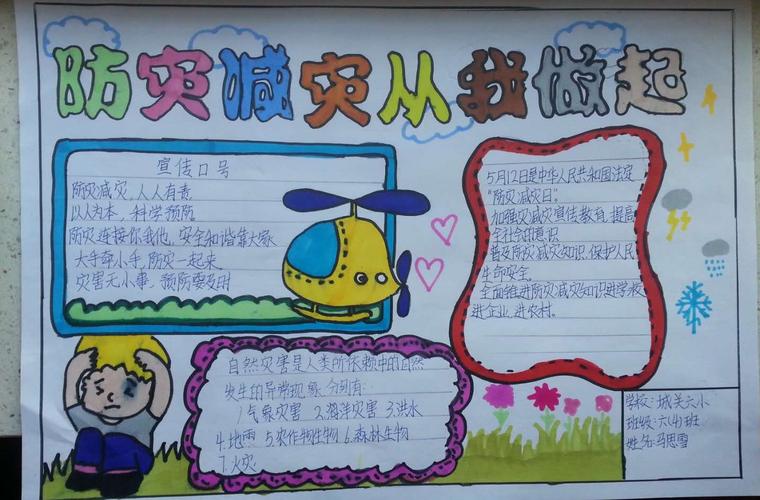 防灾减灾从我做起
宣传口号
防灾减灾，人人有责
以人为本，科学预防
防灾连接你我他，安全和谐靠大家
大手牵小手，防灾一起来
灾害无小事，预防要及时
5月12日是中华人民共和国法定
"防灾减灾日"。
加强灾减灾宣传教育，提高
全社会的意识
普及防灾减灾知识，保护人民
生命安全
全面推进防灾减灾知识进学校
进企业，进农村。
自然灾害是人类所依赖中的自然
发生的异常现象，分别有：
1.气象灾害 2.海洋灾害 3.洪水
4.地 5.农作物生物 6.森林生物
7.火灾
学校：城关六小
班级：六(4)班
姓名：马思雪